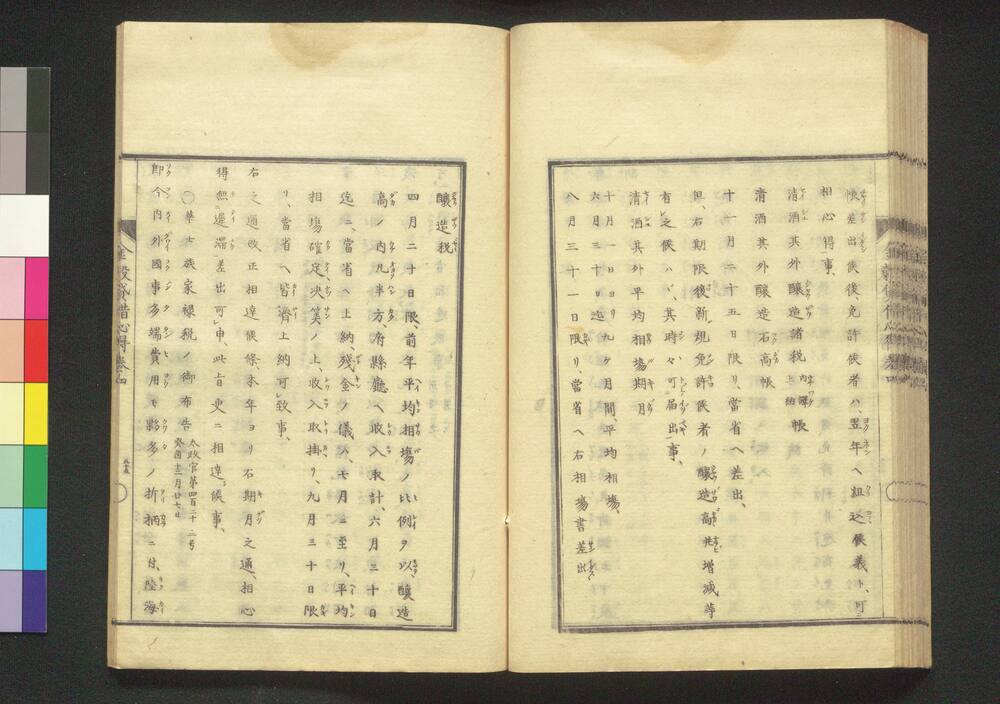 帳差出候後、免許候者ハ、翌年ヘ組込候義ト、可
相心得事、
清酒其外醸造諸税 内譯 上納 帳
清酒其外醸造石高帳
十一月二十五日限リ、當省ヘ差出、
但、右期限後新規免許候者ノ醸造高並増減等
有之候ハヾ、其時々可届出事、
清酒其外平均相場期月
十月一日ヨリ九ヶ月間、平均相場、
六月三十日迄
八月三十一日限リ、當省ヘ右相場書差出
醸造税
四月二十日限、前年平均相場ノ比例ヲ以、醸造
高ノ内凡半方、府縣廳ヘ收入取計、六月三十日
迄ニ、當省ヘ上納、殘金ノ儀ハ、七月ニ至リ、平均
相場確定決算ノ上、收入取掛リ、九月三十日限
リ、當省ヘ皆濟上納可致事、
右之通改正相達候條、本年ヨリ右期月之通、相心
得無遲滯差出可申、此旨更ニ相達候事、
〇華士族家禄税ノ御布告 太政官第四百二十二号 癸酉十二月廿七日
即今内外國事多端費用モ夥多ノ折柄ニ付、陸海
金穀貸借心得 巻四